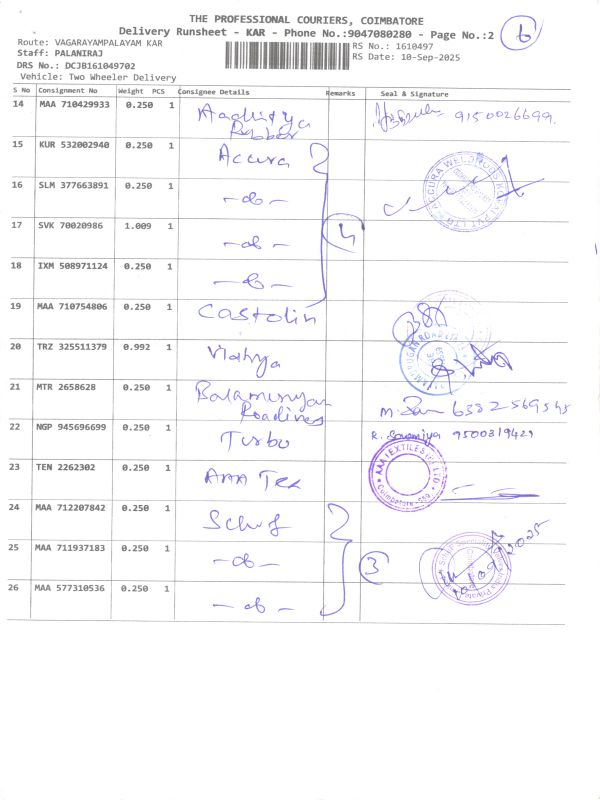 THE PROFESSIONAL COURIERS, COIMBATORE
Delivery Runsheet - KAR - Phone No.:9047080280 - Page No.:2
6
Route: VAGARAYAMPALAYAM KAR
RS No.: 1610497
Staff: PALANIRAJ
RS Date: 10-Sep-2025
DRS No.: DCJB161049702
Vehicle: Two Wheeler Delivery
S No Consignment No Weight PCS Consignee Details Remarks Seal & Signature
14 MAA 710429933 0.250 1 Aadhitya 9150026699.
Rubber
15 KUR 532002940 0.250 1 Accura
16 SLM 377663891 0.250 1 -do-
17 SVK 70020986 1.009 1 -do- 4
18 IXM 508971124 0.250 1 -do-
19 MAA 710754806 0.250 1 Castolin
20 TRZ 325511379 0.992 1
21 MTR 2658628 0.250 1 Balamurugan
22 NGP 945696699 0.250 1 Turbo R. Sowmiya 9500319429
23 TEN 2262302 0.250 1 AAA Tex
AAA TEXTILES (P) LTD
Coimbatore
24 MAA 712207842 0.250 1
25 MAA 711937183 0.250 1 -do- 3
26 MAA 577310536 0.250 1 -do-